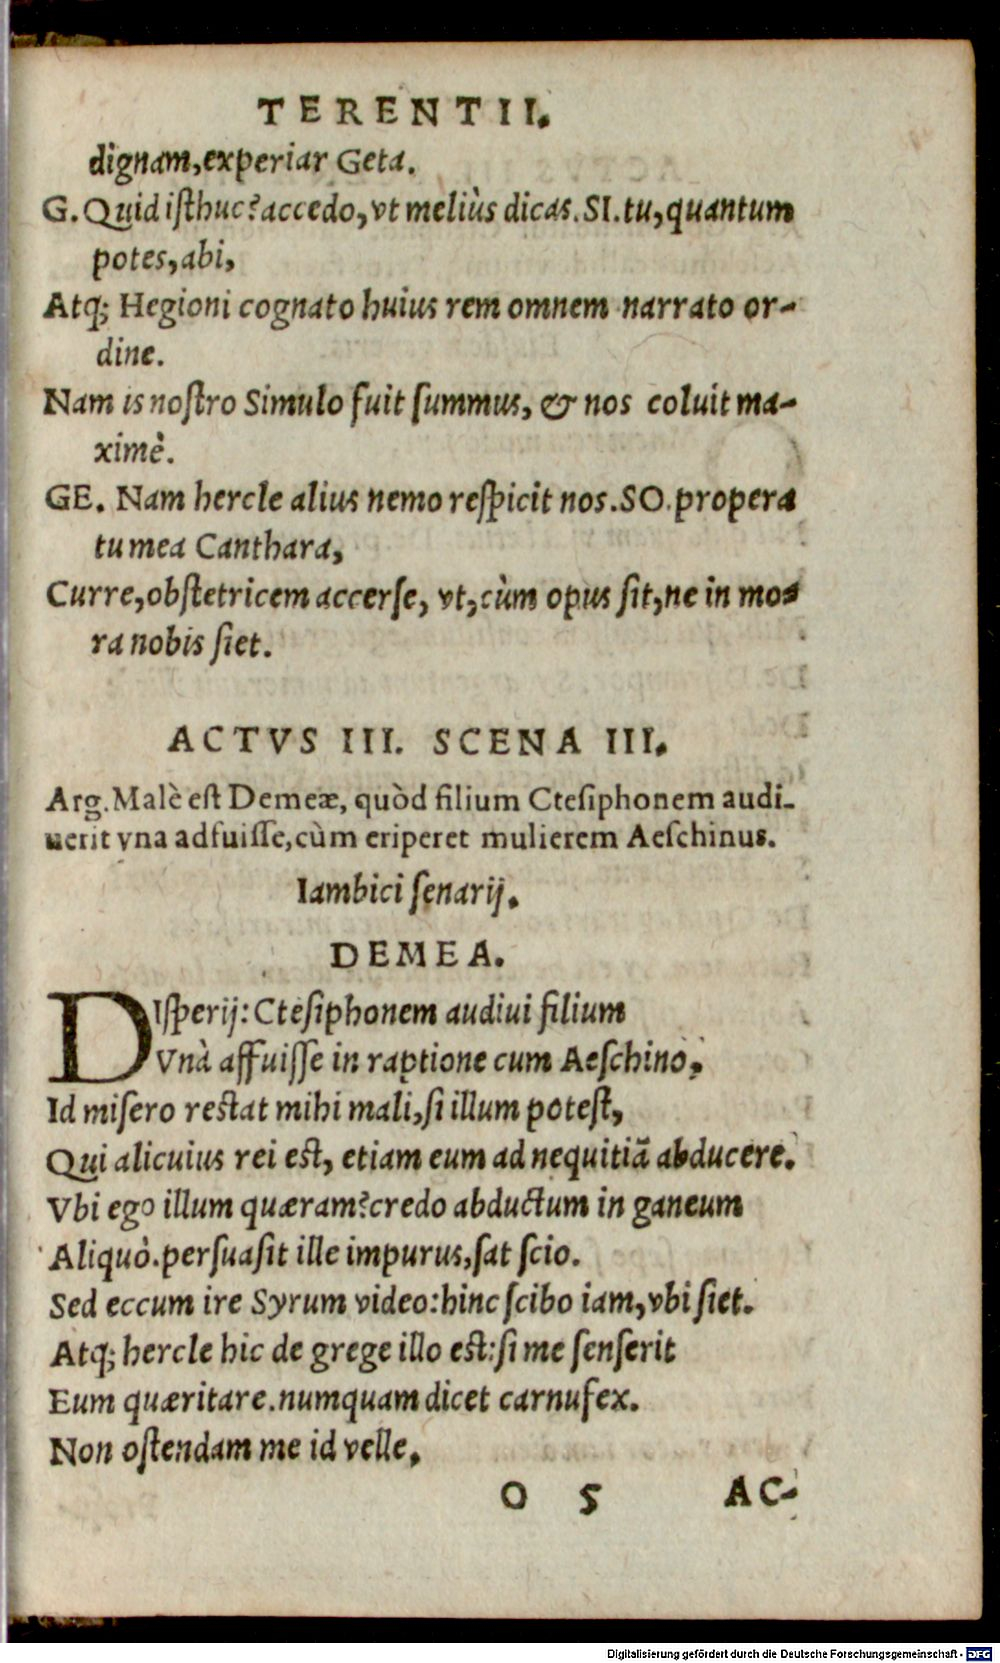 TERENTII.
dignam, experiar Geta.
G. Quid isthuc? accedo, vt meliùs dicas. SI. tu, quantum
potes, abi,
Atq; Hegioni cognato huius rem omnem narrato or-
dine.
Nam is nostro Simulo fuit summus, & nos coluit ma-
ximè.
GE. Nam hercle alius nemo respicit nos. SO. propera
tu mea Canthara,
Curre, obstetricem accerse, vt, cùm opus sit, ne in mo-
ra nobis siet.
ACTVS III. SCENA III.
Arg. Malè est Demeæ, quòd filium Ctesiphonem audi-
uerit vna adfuisse, cùm eriperet mulierem Aeschinus.
Iambici senarij.
DEMEA.
DIsperij: Ctesiphonem audiui filium
Vnà affuisse in raptione cum Aeschino;
Id misero restat mihi mali, si illum potest,
Qui alicuius rei est, etiam eum ad nequitiã abducere.
Vbi ego illum quæram? credo abductum in ganeum
Aliquò. persuasit ille impurus, sat scio.
Sed eccum ire Syrum video: hinc scibo iam, vbi siet.
Atq; hercle hic de grege illo est: si me senserit
Eum quæritare. numquam dicet carnufex.
Non ostendam me id velle.
O 5 AC-
Digitalisierung gefördert durch die Deutsche Forschungsgemeinschaft - DFG